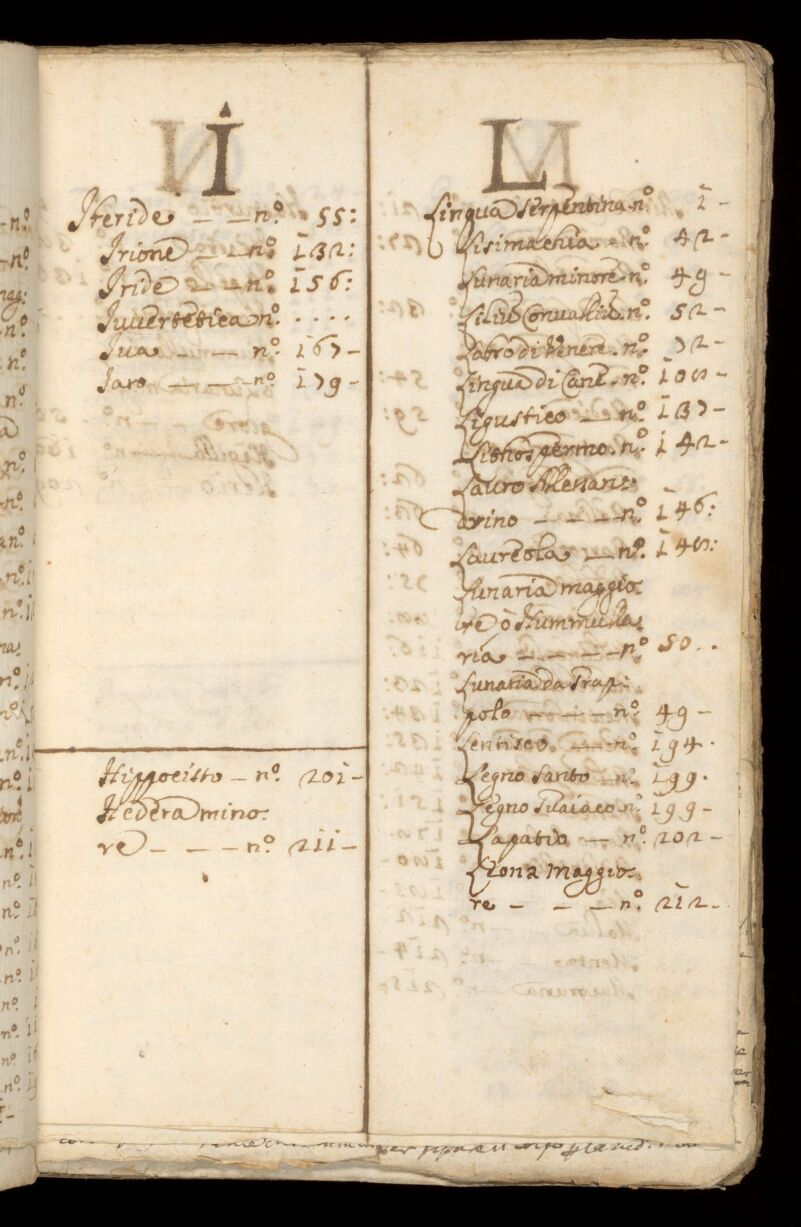 I
Iteride — — nº. 55:
Irione — — nº. 132:
Iride — — nº. 156:
Iuuertetica nº. ....
Iua — — — nº. 167-
Iaro — — — nº. 179-
Hippocisto — nº. 201-
Hedera mino:
re — — — nº. 211-
L
Lingua Serpentina nº. 1-
Lisimachia nº. 42-
Lunaria minore nº. 49-
Liliũ Conualliũ. nº. 52-
Labro di Venere. nº. 72-
Lingua di Cane. nº. 108-
Ligustico — nº. 137-
Lithospermo. nº. 142-
Lauro Alessan:
drino — — — nº. 146:
Laureola — nº. 148:
Lunaria maggio:
re ò Nummula:
ria — — — nº. 50..
Lunaria da Trap:
polo — — — nº. 49-
Lentisco — nº. 194.
Legno Santo nº. 199.
Legno Guaiaco nº. 199-
Lapatio — nº. 202-
maggio:
re — — — nº. 212-